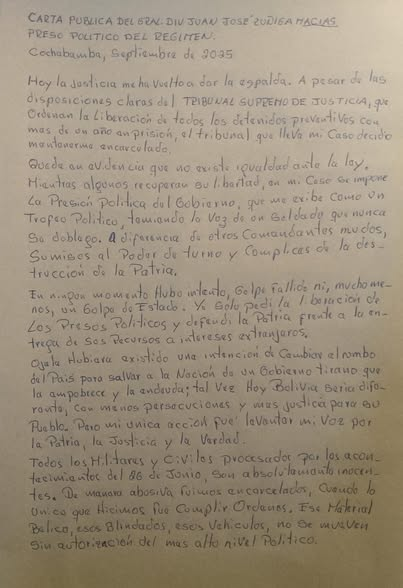 CARTA PUBLICA DEL GRAL. DIV JUAN JOSÉ ZUÑIGA MACIAS.
PRESO POLITICO DEL REGIMEN.
Cochabamba, Septiembre de 2025
Hoy la Justicia me ha Vuelto a dar la espalda. A pesar de las
disposiciones claras del TRIBUNAL SUPREMO DE JUSTICIA, que
Ordenan la Liberación de todos los detenidos preventivos con
mas de un año en prisión, el tribunal que lleva mi Caso decidio
mantenerme encarcelado.
Queda en evidencia que no existe igualdad ante la ley.
Mientras algunos recuperan su libertad, en mi Caso se impone
La Presión Politica del Gobierno, que me exibe Como un
Trofeo Politico, temiendo la Voz de un Soldado que nunca
Se doblego. A diferencia de otros Comandantes mudos,
Sumisos al Poder de turno y Complices de la des-
trucción de la Patria.
En ningun momento Hubo intento, Golpe Fallido ni, mucho me-
nos, un Golpe de Estado. Yo Solo pedi la liberación de
Los Presos Politicos y defendi la Patria frente a la en-
trega de sus Recursos a intereses extranjeros.
Ojala Hubiera existido una intención de Cambiar el rumbo
del Pais para salvar a la Nación de un Gobierno tirano que
la empobrece y la endeuda; tal Vez Hoy Bolivia Seria dife-
rente, Con menos persecuciones y mas justicia para su
Pueblo. Pero mi unica acción fue levantar mi Voz por
la Patria, la Justicia y la Verdad.
Todos los Militares y Civiles procesados por los acon-
tecimientos del 26 de Junio, Son absolutamente inocen-
tes. De manera abusiva fuimos encarcelados, Cuando lo
Unico que Hicimos fue Cumplir Ordenes. Ese Material
Belico, esos Blindados, esos Vehiculos, no Se mueven
Sin autorización del mas alto nivel Politico.